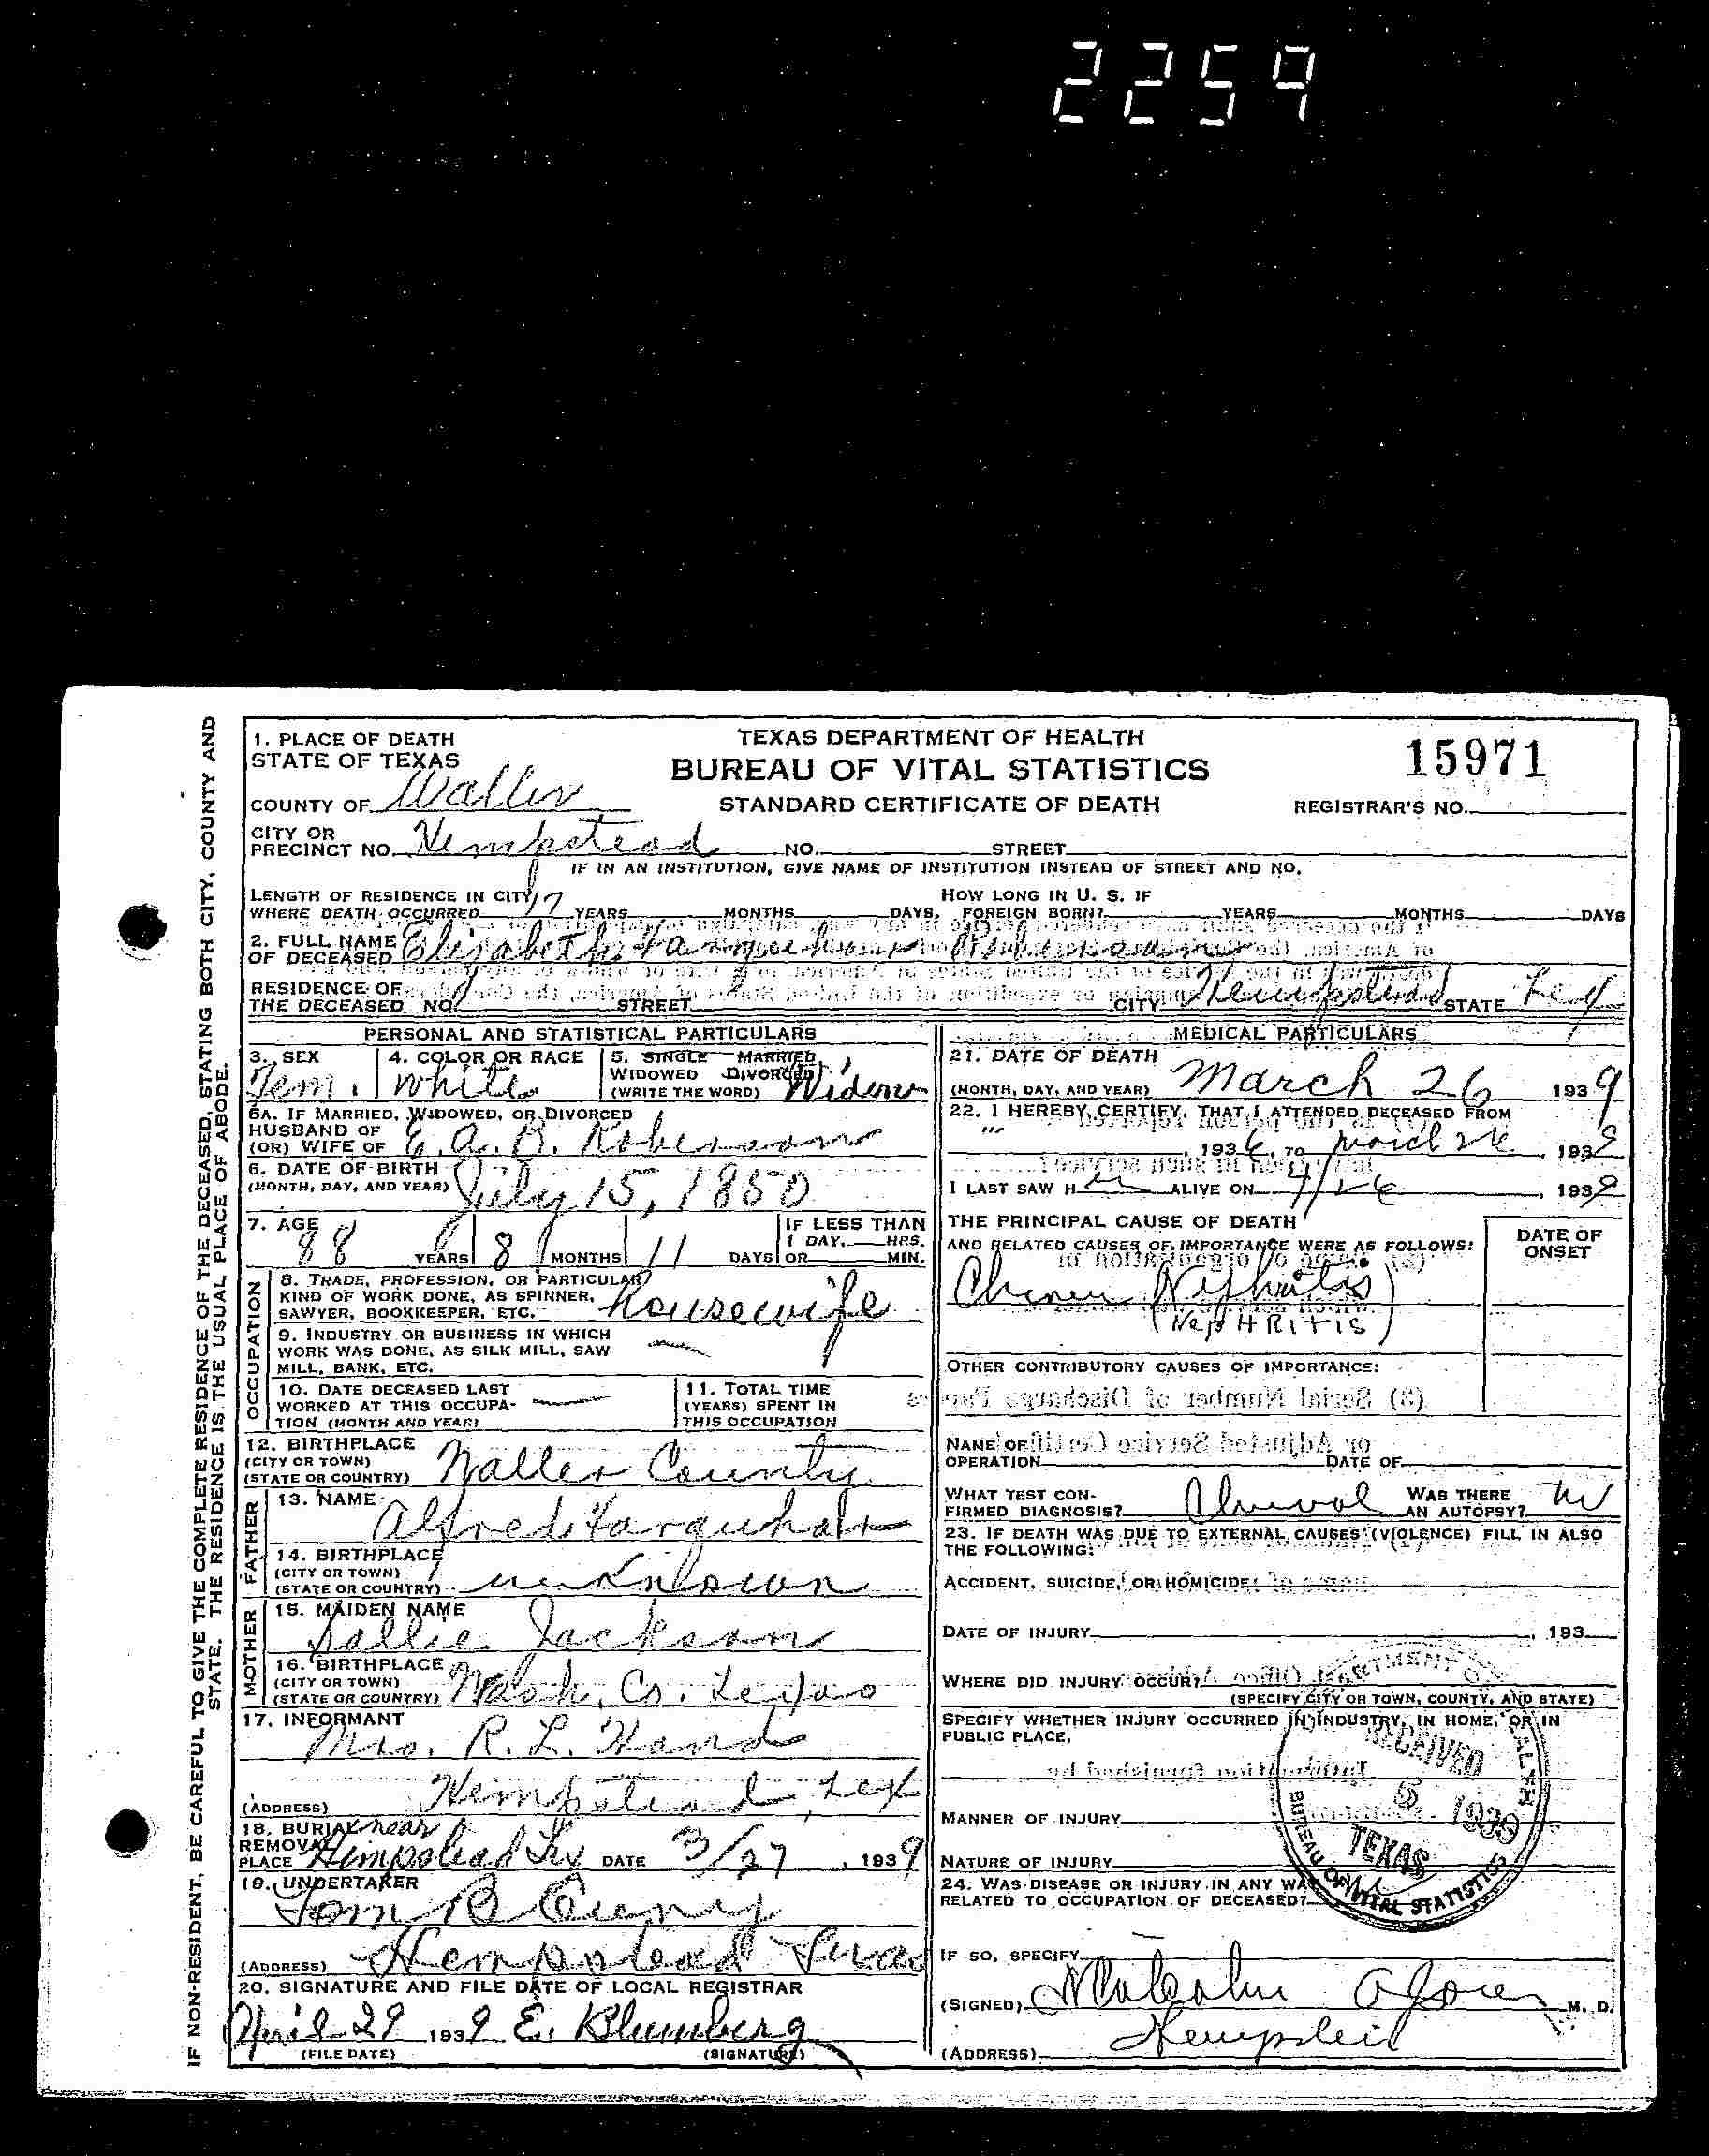 2259
IF NON-RESIDENT, BE CAREFUL TO GIVE THE COMPLETE RESIDENCE OF THE DECEASED, STATING BOTH CITY, COUNTY AND
STATE. THE RESIDENCE IS THE USUAL PLACE OF ABODE.
1. PLACE OF DEATH
STATE OF TEXAS
TEXAS DEPARTMENT OF HEALTH
BUREAU OF VITAL STATISTICS
STANDARD CERTIFICATE OF DEATH
15971
REGISTRAR'S NO.
COUNTY OF Waller
CITY OR
PRECINCT NO. Hempstead NO. STREET
IF IN AN INSTITUTION, GIVE NAME OF INSTITUTION INSTEAD OF STREET AND NO.
LENGTH OF RESIDENCE IN CITY
WHERE DEATH OCCURRED YEARS MONTHS DAYS.
HOW LONG IN U. S. IF
FOREIGN BORN? YEARS MONTHS DAYS
2. FULL NAME
OF DECEASED Elizabeth Farquhar Robinson
RESIDENCE OF
THE DECEASED NO. STREET CITY Hempstead STATE Tex
PERSONAL AND STATISTICAL PARTICULARS
3. SEX
Fem.
4. COLOR OR RACE
White
5. SINGLE MARRIED
WIDOWED DIVORCED
(WRITE THE WORD) Widow
5A. IF MARRIED, WIDOWED, OR DIVORCED
HUSBAND OF
(OR) WIFE OF E. A. B. Robinson
6. DATE OF BIRTH
(MONTH, DAY, AND YEAR) July 15, 1850
7. AGE
88 YEARS 8 MONTHS 11 DAYS
IF LESS THAN
1 DAY, HRS.
OR MIN.
OCCUPATION
8. TRADE, PROFESSION, OR PARTICULAR
KIND OF WORK DONE, AS SPINNER,
SAWYER, BOOKKEEPER, ETC. housewife
9. INDUSTRY OR BUSINESS IN WHICH
WORK WAS DONE, AS SILK MILL, SAW
MILL, BANK, ETC.
10. DATE DECEASED LAST
WORKED AT THIS OCCUPA-
TION (MONTH AND YEAR)
11. TOTAL TIME
(YEARS) SPENT IN
THIS OCCUPATION
12. BIRTHPLACE
(CITY OR TOWN)
(STATE OR COUNTRY) Waller County
FATHER
13. NAME
Alfred Farquhar
14. BIRTHPLACE
(CITY OR TOWN)
(STATE OR COUNTRY) unknown
MOTHER
15. MAIDEN NAME
Sallie Jackson
16. BIRTHPLACE
(CITY OR TOWN)
(STATE OR COUNTRY) Wash. Co. Texas
17. INFORMANT
Mrs. R. L. Hand
(ADDRESS) Hempstead, Tex
18. BURIAL near
REMOVAL
PLACE Hempstead Tex DATE 3/27, 1939
19. UNDERTAKER
Tom B
(ADDRESS) Hempstead Texas
20. SIGNATURE AND FILE DATE OF LOCAL REGISTRAR
April 29 1939 E. Blumberg
(FILE DATE) (SIGNATURE)
MEDICAL PARTICULARS
21. DATE OF DEATH
(MONTH, DAY, AND YEAR) March 26 1939
22. I HEREBY CERTIFY, THAT I ATTENDED DECEASED FROM
1936, TO March 26, 1939
I LAST SAW H ALIVE ON , 1939
THE PRINCIPAL CAUSE OF DEATH
AND RELATED CAUSES OF IMPORTANCE WERE AS FOLLOWS:
DATE OF
ONSET
Chronic Nephritis
(NepHRitis)
OTHER CONTRIBUTORY CAUSES OF IMPORTANCE:
NAME OF
OPERATION DATE OF
WHAT TEST CON-
FIRMED DIAGNOSIS? Clinical
WAS THERE
AN AUTOPSY? no
23. IF DEATH WAS DUE TO EXTERNAL CAUSES (VIOLENCE) FILL IN ALSO
THE FOLLOWING:
ACCIDENT, SUICIDE, OR HOMICIDE?
DATE OF INJURY , 193
WHERE DID INJURY OCCUR?
(SPECIFY CITY OR TOWN, COUNTY, AND STATE)
SPECIFY WHETHER INJURY OCCURRED IN INDUSTRY, IN HOME, OR IN
PUBLIC PLACE.
RECEIVED
1939
TEXAS
BUREAU OF VITAL STATISTICS
MANNER OF INJURY
NATURE OF INJURY
24. WAS DISEASE OR INJURY IN ANY WAY
RELATED TO OCCUPATION OF DECEASED?
IF SO, SPECIFY
(SIGNED) Malcolm M. D.
(ADDRESS)